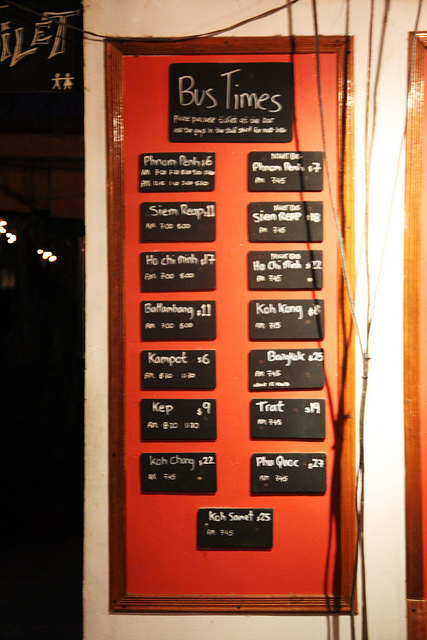 ILET
Bus Times
Please purchase ticket at the bar
Phnom Penh $6
Night Bus
Phnom Penh $7
PM 7:45
Siem Reap $11
AM 7:00 8:00
Night Bus
Siem Reap $18
PM 7:45
Ho chi minh $17
AM 7:00 8:00
Night Bus
Ho Chi Minh $22
PM 7:45
Battambang $11
AM 7:00 8:00
Koh Kong
AM 7:15
Kampot $6
AM 8:30 11:30
Bangkok $25
AM 7:45
Kep $9
AM 8:30 11:30
Trat $19
AM 7:45
Koh Chang $22
AM 7:45
Phu Quoc $27
AM 7:45
Koh Samet $25
AM 7:45